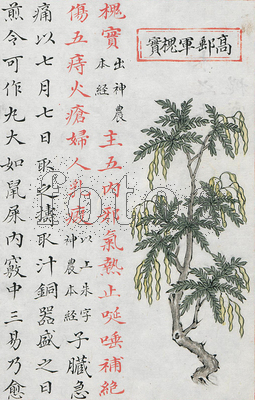 高郵軍槐實
槐實出神農本經主五內邪氣熱止唌唾補絕
傷五痔火瘡婦人乳瘕以上朱字神農本經子臟急
痛以七月七日取之擣取汁銅器盛之日
煎令可作丸大如鼠屎內竅中三易乃愈
foto